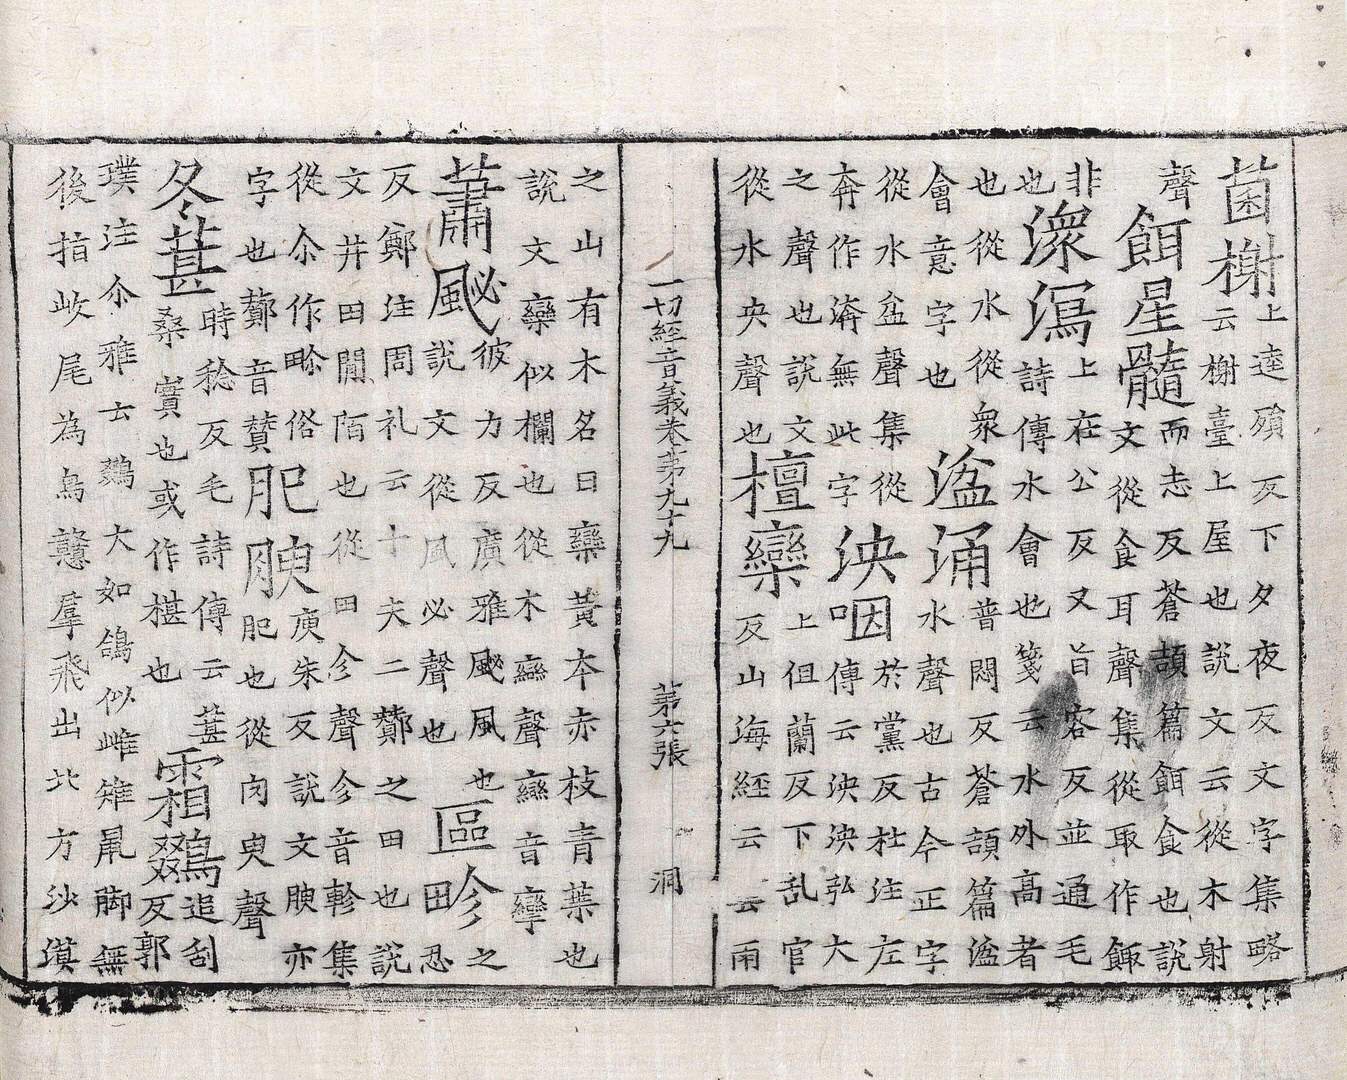 菌榭上逵殞反下夕夜反文字集略
云榭臺上屋也說文云從木射
聲餌星髓而志反蒼頡篇餌食也說
文從食耳聲集從取作䬵
非也上在公反又旨容反並通毛
潨瀉詩傳水會也箋云水外高者
也從水從眾湓涌普悶反蒼頡篇湓
水聲也古今正字
會意字也
從水盆聲集從
奔作渀無此字泱咽於黨反杜注左
傳云泱泱弘大
之聲也說文
從水央聲也檀欒上徂蘭反下乱官
反山海經云云雨
一切經音義卷第九十九 第六張 洞
之山有木名曰欒黃本赤枝青葉也
說文欒似欄也從木䜌聲䜌音攣
蕭颷必彼力反廣雅颷風也
說文從風必聲也區畛之
忍
反鄭注周礼云十夫二酇之田也說
文井田間陌也從田㐱聲㐱音軫集
從尒作畍俗字也酇音賛肥腴庾朱反說文腴亦
肥也從肉臾聲
冬葚時稔反毛詩傳云葚
桑實也或作椹也霜鵽追刮
反郭
璞注尒雅云鵽大如鴿似雌雉鼠脚無
後指岐尾為鳥憨羣飛出北方沙漠